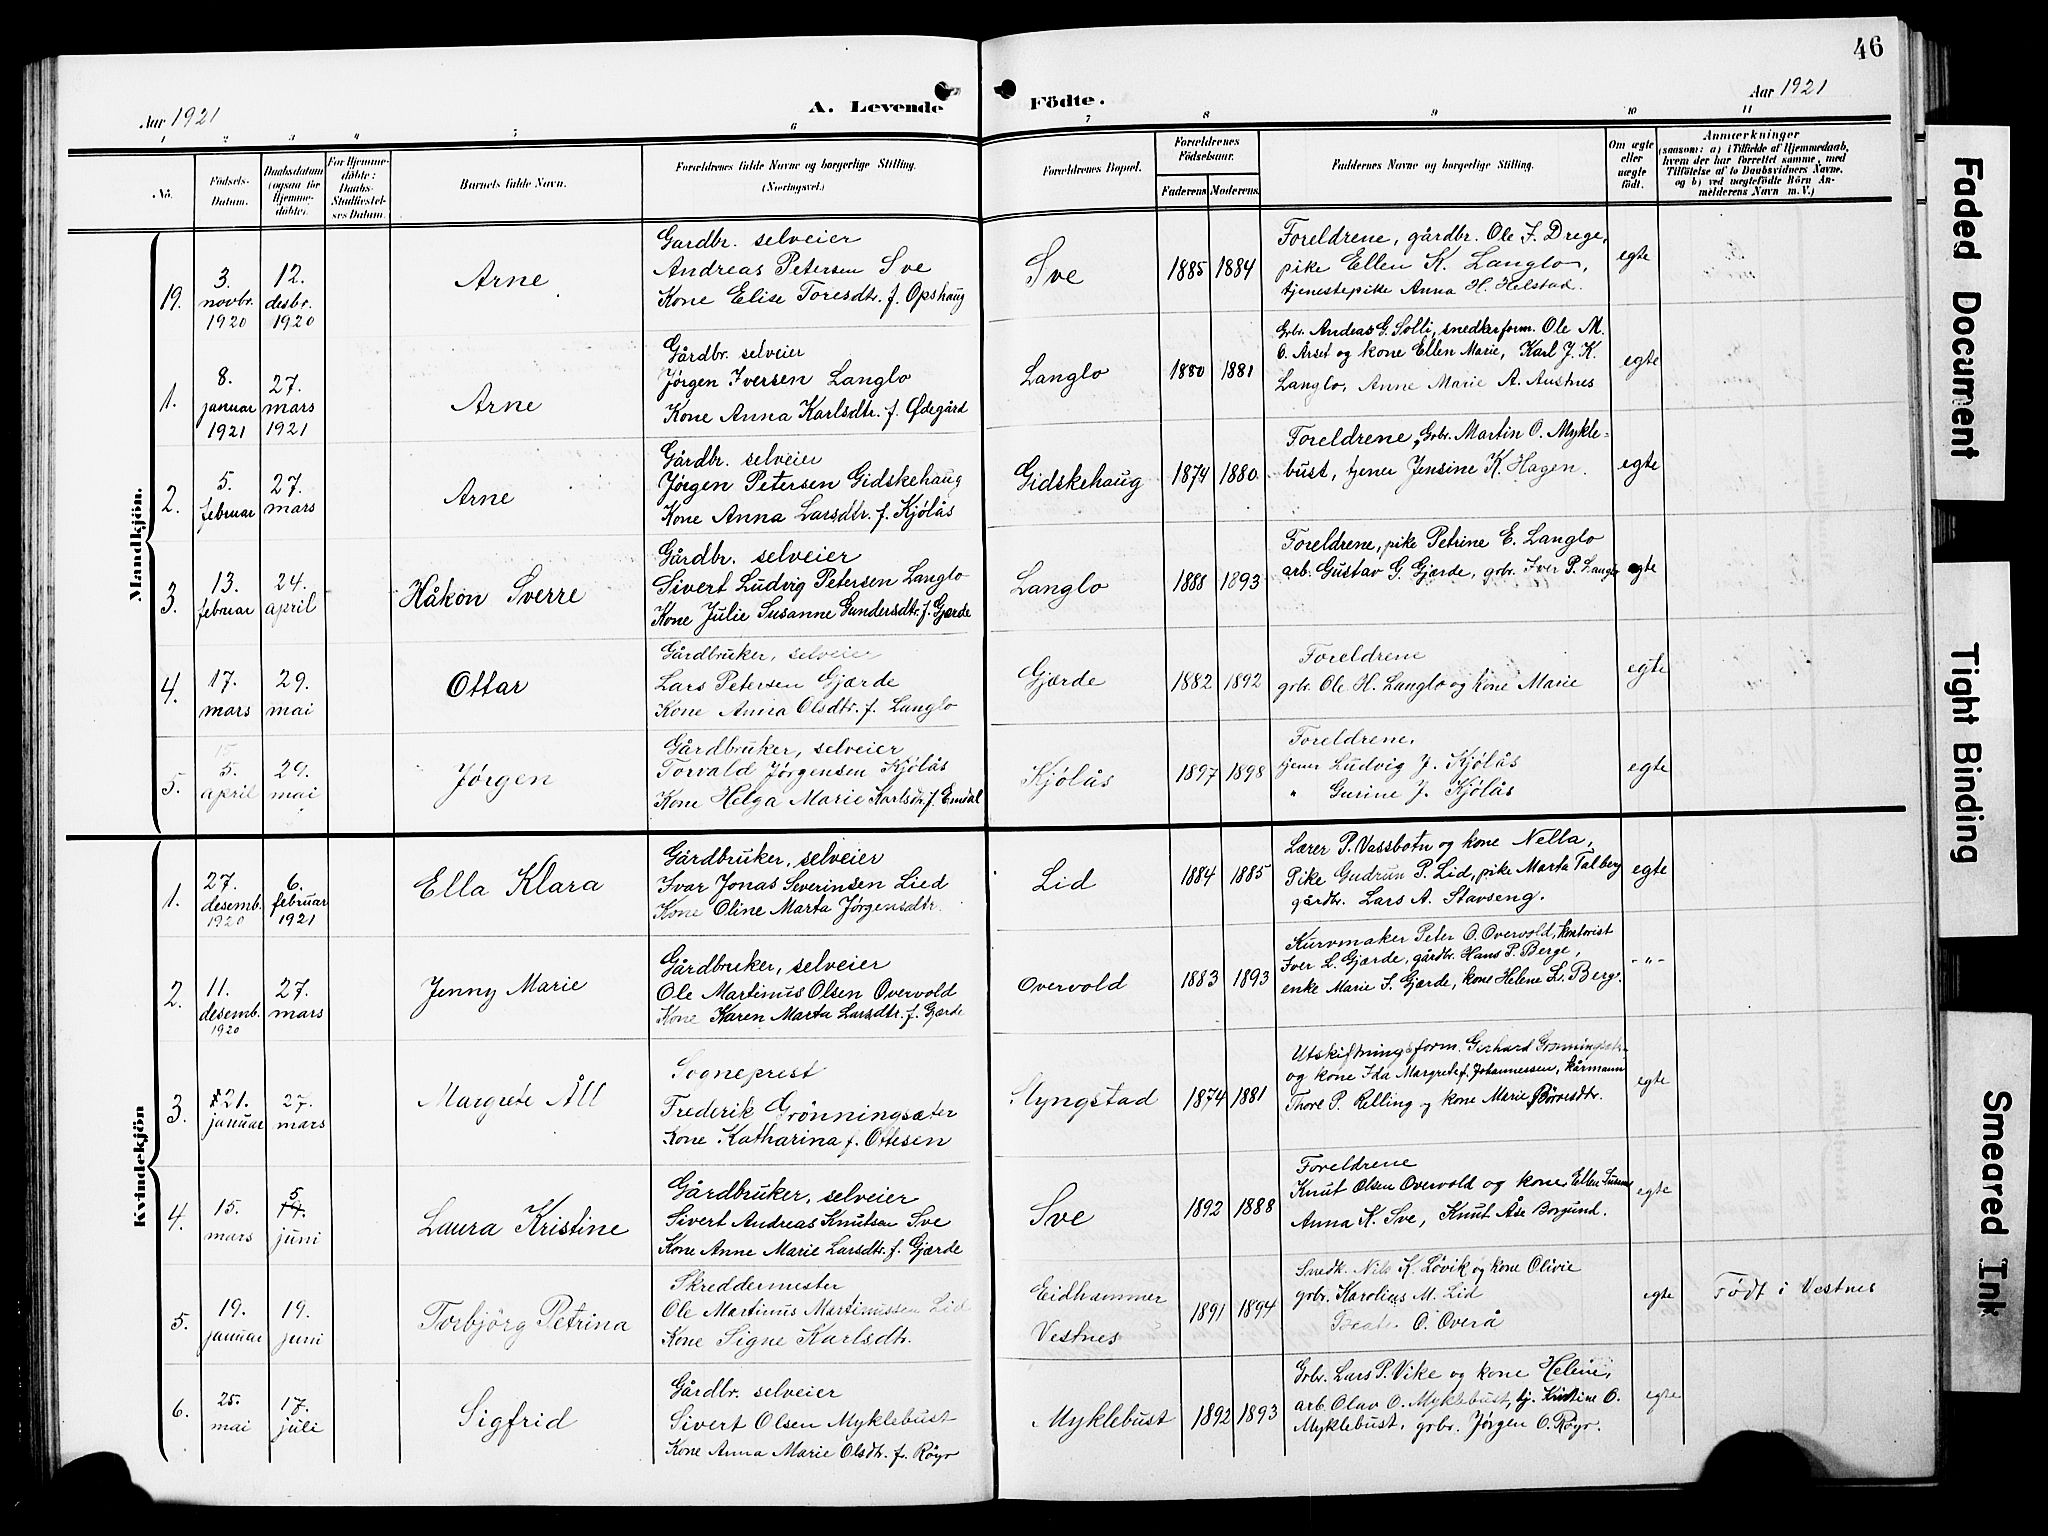 46
Aar 1921
A. Levende
Födte.
Aar 1921
1 2 3 4 5 6 7 8 9 10 11
No.
Födsels-Datum.
Daabsdatum (ogsaa for Hjemmedöbte).
For Hjemmedöbte: Daabs-Stadfæstelses Datum.
Barnets fulde Navn.
Forældrenes fulde Navne og borgerlige Stilling. (Næringsvei.)
Forældrenes Bopæl.
Forældrenes Födselsaar.
Faderens Moderens
Faddernes Navne og borgerlige Stilling.
Om ægte eller uægte födt.
Anmærkninger
(saasom: a) i Tilfælde af Hjemmedaab, hvem der har forrettet samme, med Tilföielse af to Daabsvidners Navne. og b) ved uægtefödte Börn Anmelderens Navn m. V.)
Mandkjön.
19.
3. novbr. 1920
12. desbr. 1920
Arne
Gardbr. selveier
Andreas Petersen Sve
Kone Elise Toresdtr. f. Opshaug
Sve
1885 1884
Foreldrene, gårdbr. Ole J. Drege,
pike Ellen K. Langlo,
tjenestepike Anna H. Helstad.
egte
1.
8. januar 1921
27. mars 1921
Arne
Gårdbr. selveier
Jørgen Iversen Langlo
Kone Anna Karlsdtr. f. Ødegård
Langlo
1880 1881
Grbr. Andeas G. Solli, snedkerform. Ole M.
O. Årset og kone Ellen Marie, Karl J. K.
Langlo, Anne Marie A. Austnes
egte
2.
5. februar
27. mars
Arne
Gårdbr. selveier
Jørgen Petersen Gidskehaug
Kone Anna Larsdtr. f. Kjölås
Gidskehaug
1874 1880
Foreldrene, Grbr. Martin O. Mykle-
bust, tjener Jensine K. Hagen.
egte
3.
13. februar
24. april
Håkon Sverre
Gårdbr. selveier
Sivert Ludvig Petersen Langlo
Kone Julie Susanne Gundersdtr. f. Gjærde
Langlo
1888 1893
Foreldrene, pike Petrine E. Langlo
arb. Gustav G. Gjærde, grbr. Iver P. Langlo
egte
4.
17. mars
29. mai
Ottar
Gårdbruker, selveier
Lars Petersen Gjærde
Kone Anna Olsdtr. f. Langlo
Gjærde
1882 1892
Foreldrene
grbr. Ole H. Langlo og kone Marie
egte
5.
5. april
29. mai
Jørgen
Gårdbruker, selveier
Torvald Jørgensen Kjölås
Kone Helga Marie Karlsdtr. f. Emdal
Kjölås
1897 1898
Foreldrene,
tjener Ludvig J. Kjölås
" Gurine J. Kjölås
egte
Kvindekjön
1.
27. desemb. 1920
6. februar 1921
Ella Klara
Gårdbruker, selveier
Ivar Jonas Severinsen Lied
Kone Oline Marta Jørgensdtr.
Lid
1884 1885
Lærer P. Vassbotn og kone Nella,
Pike Gudrun P. Lid, pike Marta Talberg
gårdbr. Lars A. Stavseng.
egte
2.
11. desemb. 1920
27. mars
Jenny Marie
Gårdbruker, selveier
Ole Martinus Olsen Overvold
Kone Karen Marta Larsdtr. f. Gjærde
Overvold
1883 1893
Kurvmaker Peter O. Overvold, kontorist
Iver L. Gjærde, gårdbr. Hans P. Berge,
enke Marie J. Gjærde, kone Helene L. Berge.
- " -
3.
21. januar
27. mars
Margrete Åll
Sogneprest
Frederik Grönningsæter
Kone Katharina f. Ottesen
1874 1881
Utskiftningsform. Gerhard Grönningsæter
og kone Ida Margrete f. Johannessen, kårmann
Thore P. Relling og kone Marie Börresdtr.
egte
4.
15. mars
5 juni
Laura Kristine
Gårdbruker, selveier
Sivert Andreas Knutsen Sve
Kone Anne Marie Larsdtr. f. Gjærde
Sve
1892 1888
Foreldrene
Knut Olsen Overvold og kone Ellen
Anna K. Sve, Knut Åse Borgund.
egte
5.
19. januar
19. juni
Torbjörg Petrina
Skreddermester
Ole Martinus Martinussen Lid
Kone Signe Karlsdtr.
Eidhammer
Vestnes
1891 1894
Snedk. Nils K. Lövik og kone Olivie
grbr. Karolius M. Lid
O. Overå
egte
Födt i Vestnes
6.
25. mai
17. juli
Sigfrid
Gårdbr. selveier
Sivert Olsen Myklebust
Kone Anna Marie Olsdtr. f. Röyr
Myklebust
1892 1893
Grbr. Lars P. Vike og kone Heline,
arb. Olav O. Myklebust, tj. Kristine O.
Myklebust, grbr. Jørgen O. Röyr.
egte
Faded Document
Tight Binding
Smeared Ink